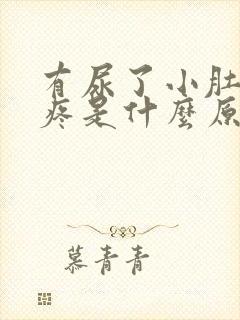 有尿了小肚
疼是什麼原
慕青青